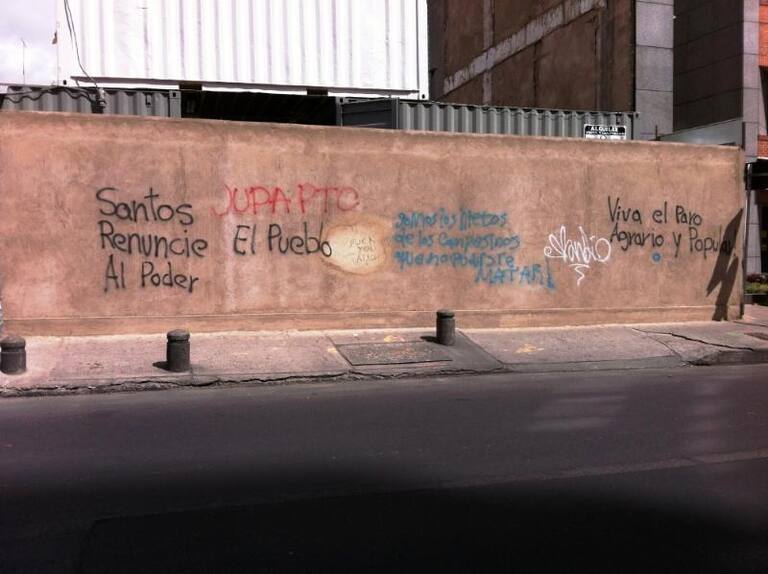 ALQUILER
JUPA PTC
Santos
Renuncie
Al Poder
El Pueblo
FUCK
YOU
Somos los Nietos
de los Campesinos
que no pudiste
MATAR!
Viva el Paro
Agrario y Popular